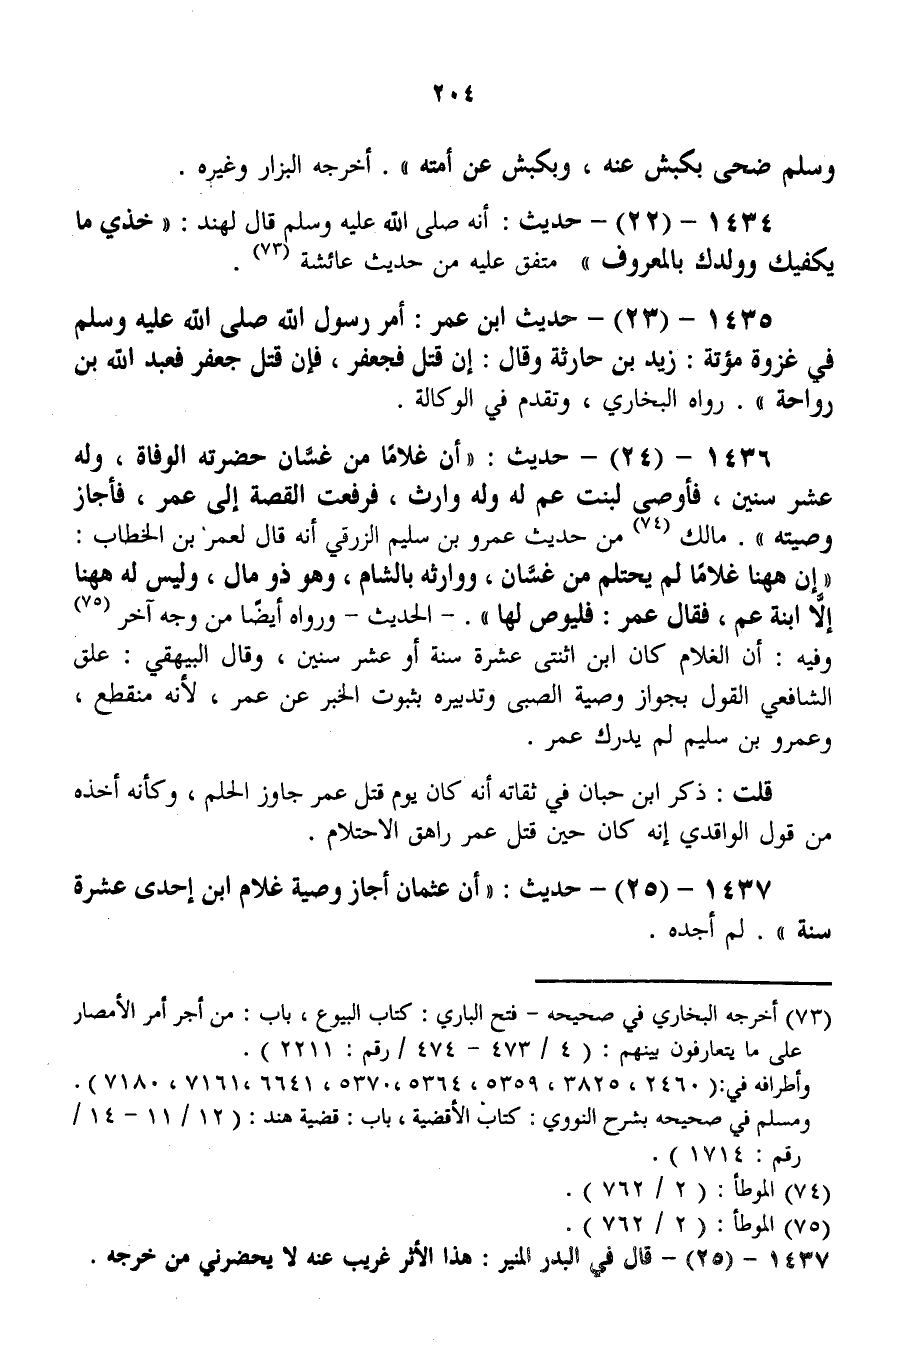 ٢٠٤
وسلم ضحى بكبش عنه ، وبكبش عن أمته » . أخرجه البزار وغيره .
١٤٣٤ – (٢٢) – حديث : أنه صلى الله عليه وسلم قال لهند : « خذي ما
يكفيك وولدك بالمعروف » متفق عليه من حديث عائشة (٧٣) .
١٤٣٥ – (٢٣) – حديث ابن عمر : أمر رسول الله صلى الله عليه وسلم
في غزوة مؤتة : زيد بن حارثة وقال : إن قتل فجعفر ، فإن قتل جعفر فعبد الله بن
رواحة » . رواه البخاري ، وتقدم في الوكالة .
١٤٣٦ – (٢٤) – حديث : « أن غلامًا من غسَّان حضرته الوفاة ، وله
عشر سنين ، فأوصى لبنت عم له وله وارث ، فرفعت القصة إلى عمر ، فأجاز
وصيته » . مالك (٧٤) من حديث عمرو بن سليم الزرقي أنه قال لعمر بن الخطاب :
« إن ههنا غلامًا لم يحتلم من غسَّان ، ووارثه بالشام ، وهو ذو مال ، وليس له ههنا
إلَّا ابنة عم ، فقال عمر : فليوص لها » . – الحديث – ورواه أيضًا من وجه آخر (٧٥)
وفيه : أن الغلام كان ابن اثنتى عشرة سنة أو عشر سنين ، وقال البيهقي : علق
الشافعي القول بجواز وصية الصبى وتدبيره بثبوت الخبر عن عمر ، لأنه منقطع ،
وعمرو بن سليم لم يدرك عمر .
قلت : ذكر ابن حبان في ثقاته أنه كان يوم قتل عمر جاوز الحلم ، وكأنه أخذه
من قول الواقدي إنه كان حين قتل عمر راهق الاحتلام .
١٤٣٧ – (٢٥) – حديث : « أن عثمان أجاز وصية غلام ابن إحدى عشرة
سنة » . لم أجده .
(٧٣) أخرجه البخاري في صحيحه – فتح الباري : كتاب البيوع ، باب : من أجر أمر الأمصار
على ما يتعارفون بينهم : ( ٤ / ٤٧٣ – ٤٧٤ / رقم : ٢٢١١ ) .
وأطرافه في:( ٢٤٦٠ ، ٣٨٢٥ ، ٥٣٥٩ ، ٥٣٦٤ ،٥٣٧٠ ، ٦٦٤١ ،٧١٦١ ، ٧١٨٠ ) .
ومسلم في صحيحه بشرح النووي : كتاب الأقضية ، باب : قضية هند : ( ١٢ / ١١ – ١٤ /
رقم : ١٧١٤ ) .
(٧٤) الموطأ : ( ٢ / ٧٦٢ ) .
(٧٥) الموطأ : ( ٢ / ٧٦٢ ) .
١٤٣٧ – (٢٥) – قال في البدر المنير : هذا الأثر غريب عنه لا يحضرني من خرجه .